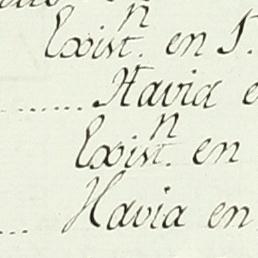 Existn. en 1.
Havia e
Existn. en
Havia en